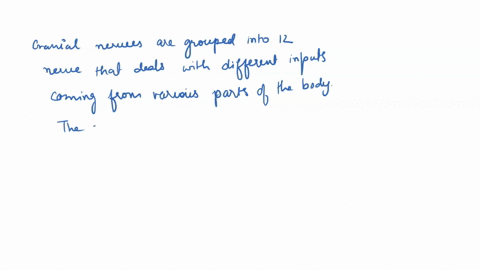 Cranial nerves are grouped into 12
nerve that deals with different inputs
coming from various parts of the body.
The .